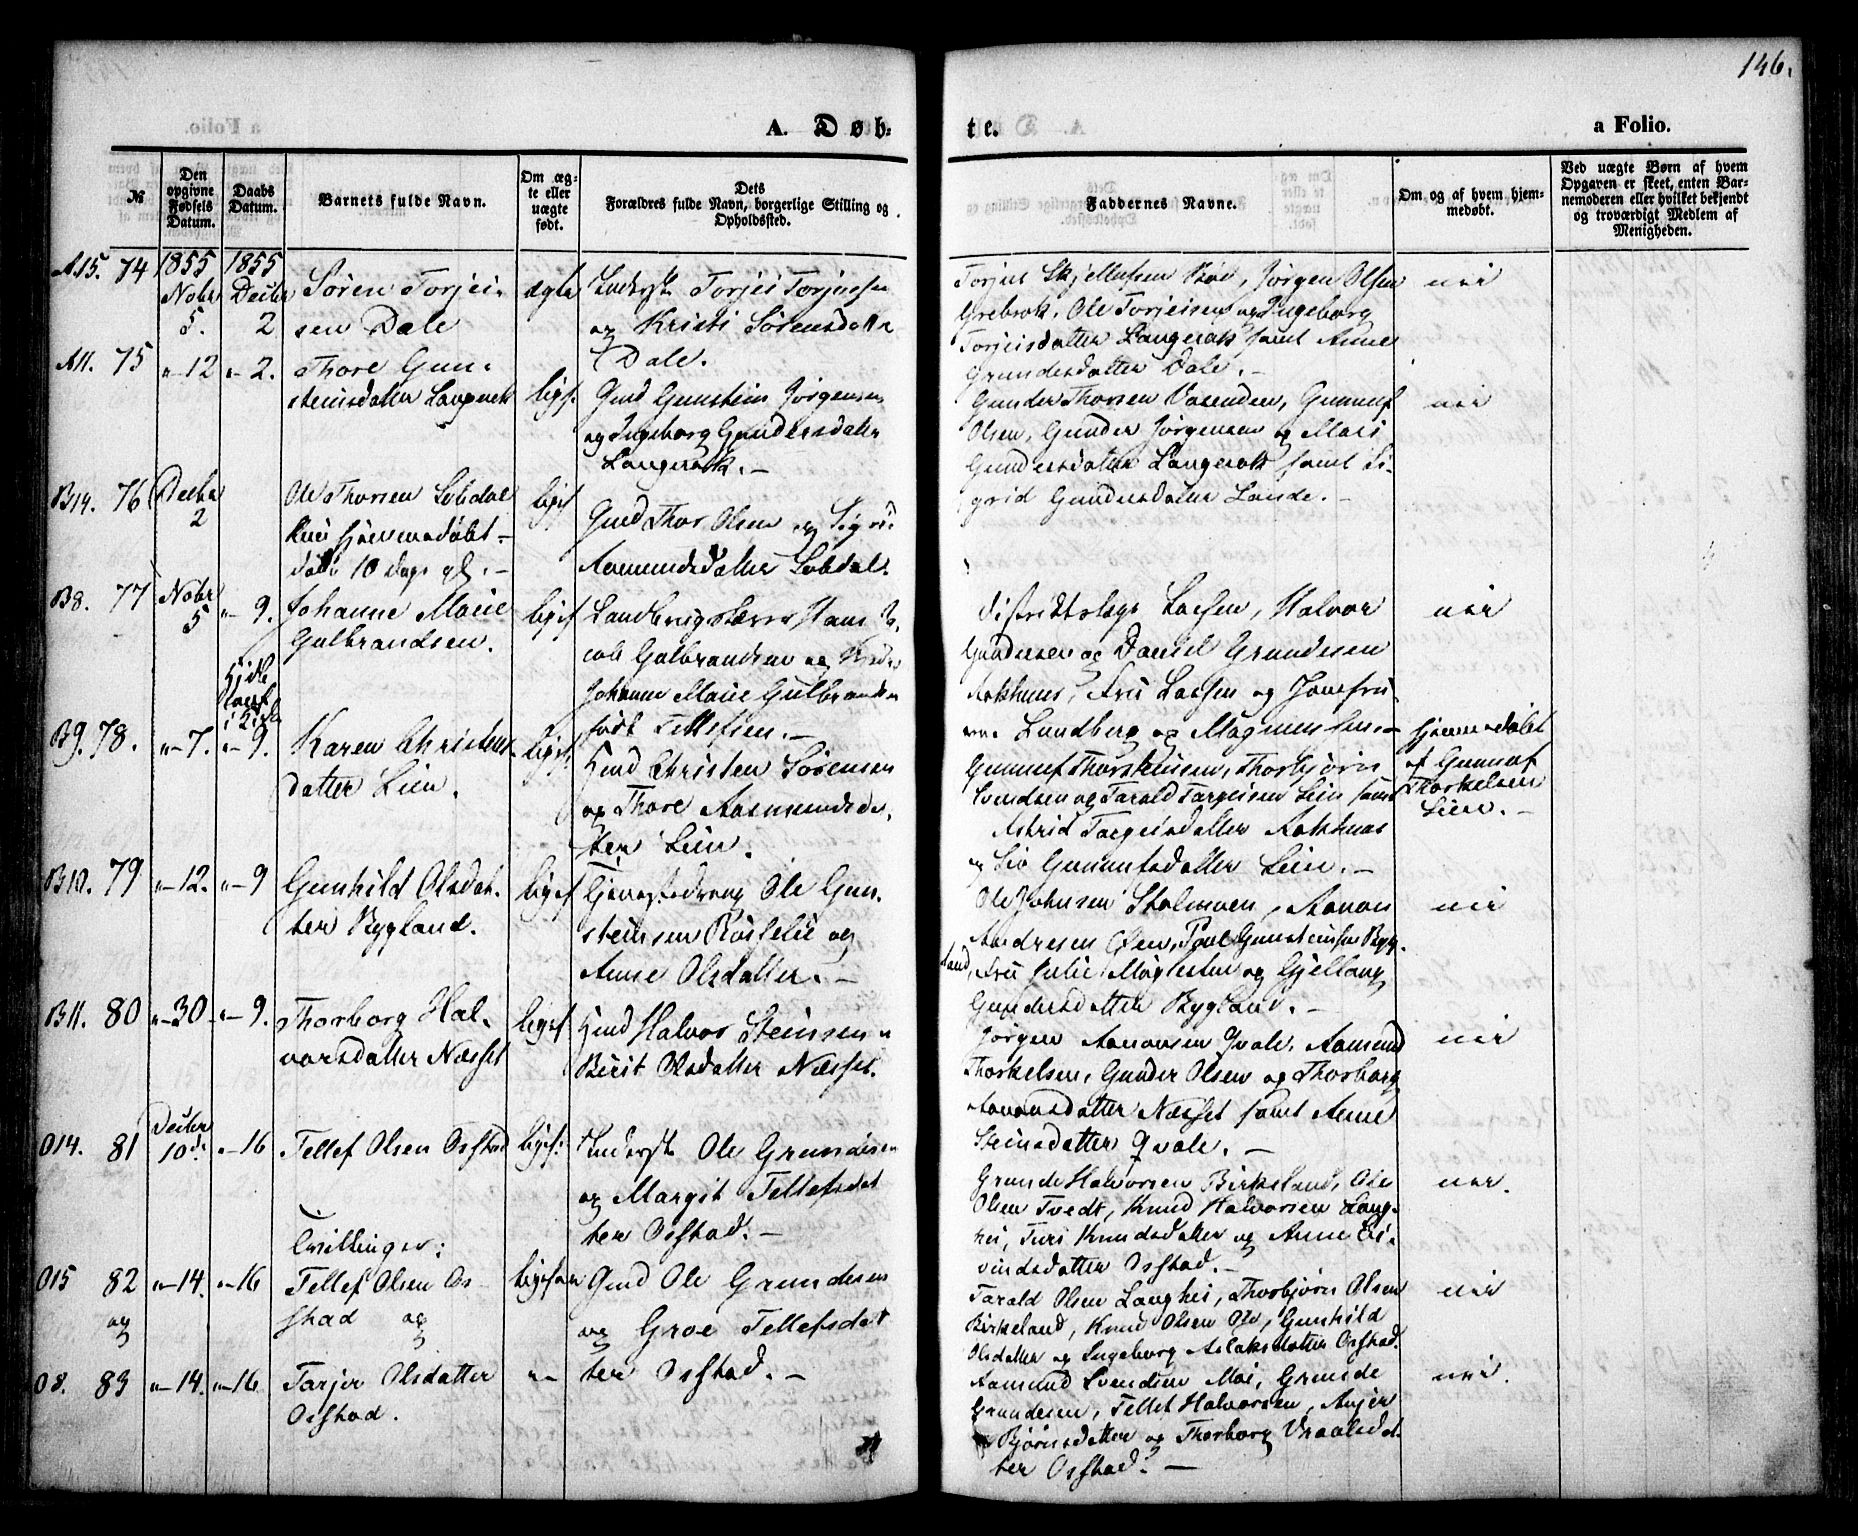 146.
A. Døb=
te.
a Folio.
№
Den opgivne Fødsels Datum.
Daabs Datum.
Barnets fulde Navn.
Om ægte eller uægte født.
Dets Forældres fulde Navn, borgerlige Stilling og Opholdssted.
Faddernes Navne.
Om og af hvem hjemmedøbt.
Ved uægte Børn af hvem Opgaven er skeet, enten Barnemoderen eller hvilket bekjendt og troværdigt Medlem af Menigheden.
A15. 74
1855 Nobr 5.
1855 Decbr 2
Søren Torjei-
sen Dale
ægte
Torjei Torjeisen
og Kristi Sørensdatter
Dale.
Torjus Skjellufsen Bøe, Jørgen Olsen
Grebrok, Ole Torjeisen og Ingeborg
Torjeisdatter Langerak samt Anne
Grundesdatter Dale. -
nei
A11. 75
"-12
"- 2.
Thore Gun-
steinsdatter Langerak
liges.
Gmd Gunstein Jørgensen
og Ingeborg Gundersdatter
Langerak. -
Gunder Thorsen Vasenden, Gunnuf
Olsen, Gunder Jørgensen og Mari
Gundersdatter Langerak samt Si-
grid Gundersdatter Lande. -
nei
B14. 76
Decbr 2
Ole Thorsen Lobdal
kun hjemmedøbt -
døde 10 dage gl. -
ligs
Gmd Thor Olsen og Sigri
Aamundsdatter Lobdal.
B8. 77
Nobr 5
"- 9.
Johanne Marie
Gulbrandsen.
ligs
Hans Ja-
cob Gulbrandsen og
Johanne Marie Gulbrandsen
født Tellefsen. -
Distriktslæge Larsen, Halvor
Gundersen og Daniel Grundesen
Aakhus, Fru Larsen og Jomfru-
erne Lundberg og Magnussen -
nei
B9. 78.
"- 7.
"- 9.
Karen Christens-
datter Lien.
ligs.
Hmd Christen Sørensen
og Thore Aasmundsda-
tter Lien.
Gunnuf Thorkelsen, Thorbjørn
Svendsen og Tarald Targeisen Lien samt
Astrid Targeisdatter Aakhus
og Siv Gunnufsdatter Lien. -
hjemmedøbt
af Gunnuf
Thorkelsen
Lien. -
B10. 79
"-12.
"- 9
Gunhild Olsdat-
ter Bygland.
ligs
Tjenestedreng Ole Gun-
steinsen Røiselie og
Anne Olsdatter. -
Ole Johnsen Stolmoen, Aanon
Andresen Osen, Poul Gunsteinsen Byg-
land, Fru Julie Møglestue og Gjellaug
Gundersdatter Bygland. -
nei
B11. 80
"-30
"- 9.
Thorborg Hal-
vorsdatter Næsset
ligs
Hmd Halvor Steinsen
Birit Olsdatter Næsset.
Jørgen Aanonsen Qvale, Aamund
Thorkelsen, Gunder Olsen og Thorborg
Aanonsdatter Næsset samt Anne
Steinsdatter Qvale. -
nei
O14. 81
Decbr 10de
"-16
Tellef Olsen Osstad
ligs:
Ole Grundesen
og Margit Tellefsdat
ter Osstad. -
Grunde Halvorsen Birkeland, Ole
Olsen Tvedt, Knud Halvorsen Lang-
hei, Turi Knudsdatter og Anne Ei-
vindsdatter Osstad. -
nei.
Tvillinger:
O15 82
og
"-14.
"-16
Tellef Olsen Os-
stad og
Gmd Ole Grundesen
og Groe Tellefsdat
ter Osstad. -
Tarald Olsen Langhei, Thorbjørn Olsen
Birkeland, Knud Olsen Ose, Gunhild
Olsdatter og Ingeborg Aslaksdatter Osstad.
nei
O8. 83
"-14.
"-16
Tarjer Olsdatter
Osstad.
"-
Aamund Svendsen Moi, Grunde
Grundesen, Tellef Halvorsen, Anjer
Bjørnsdatter og Thorborg Vraalsdat-
ter Osstad. -
nei.